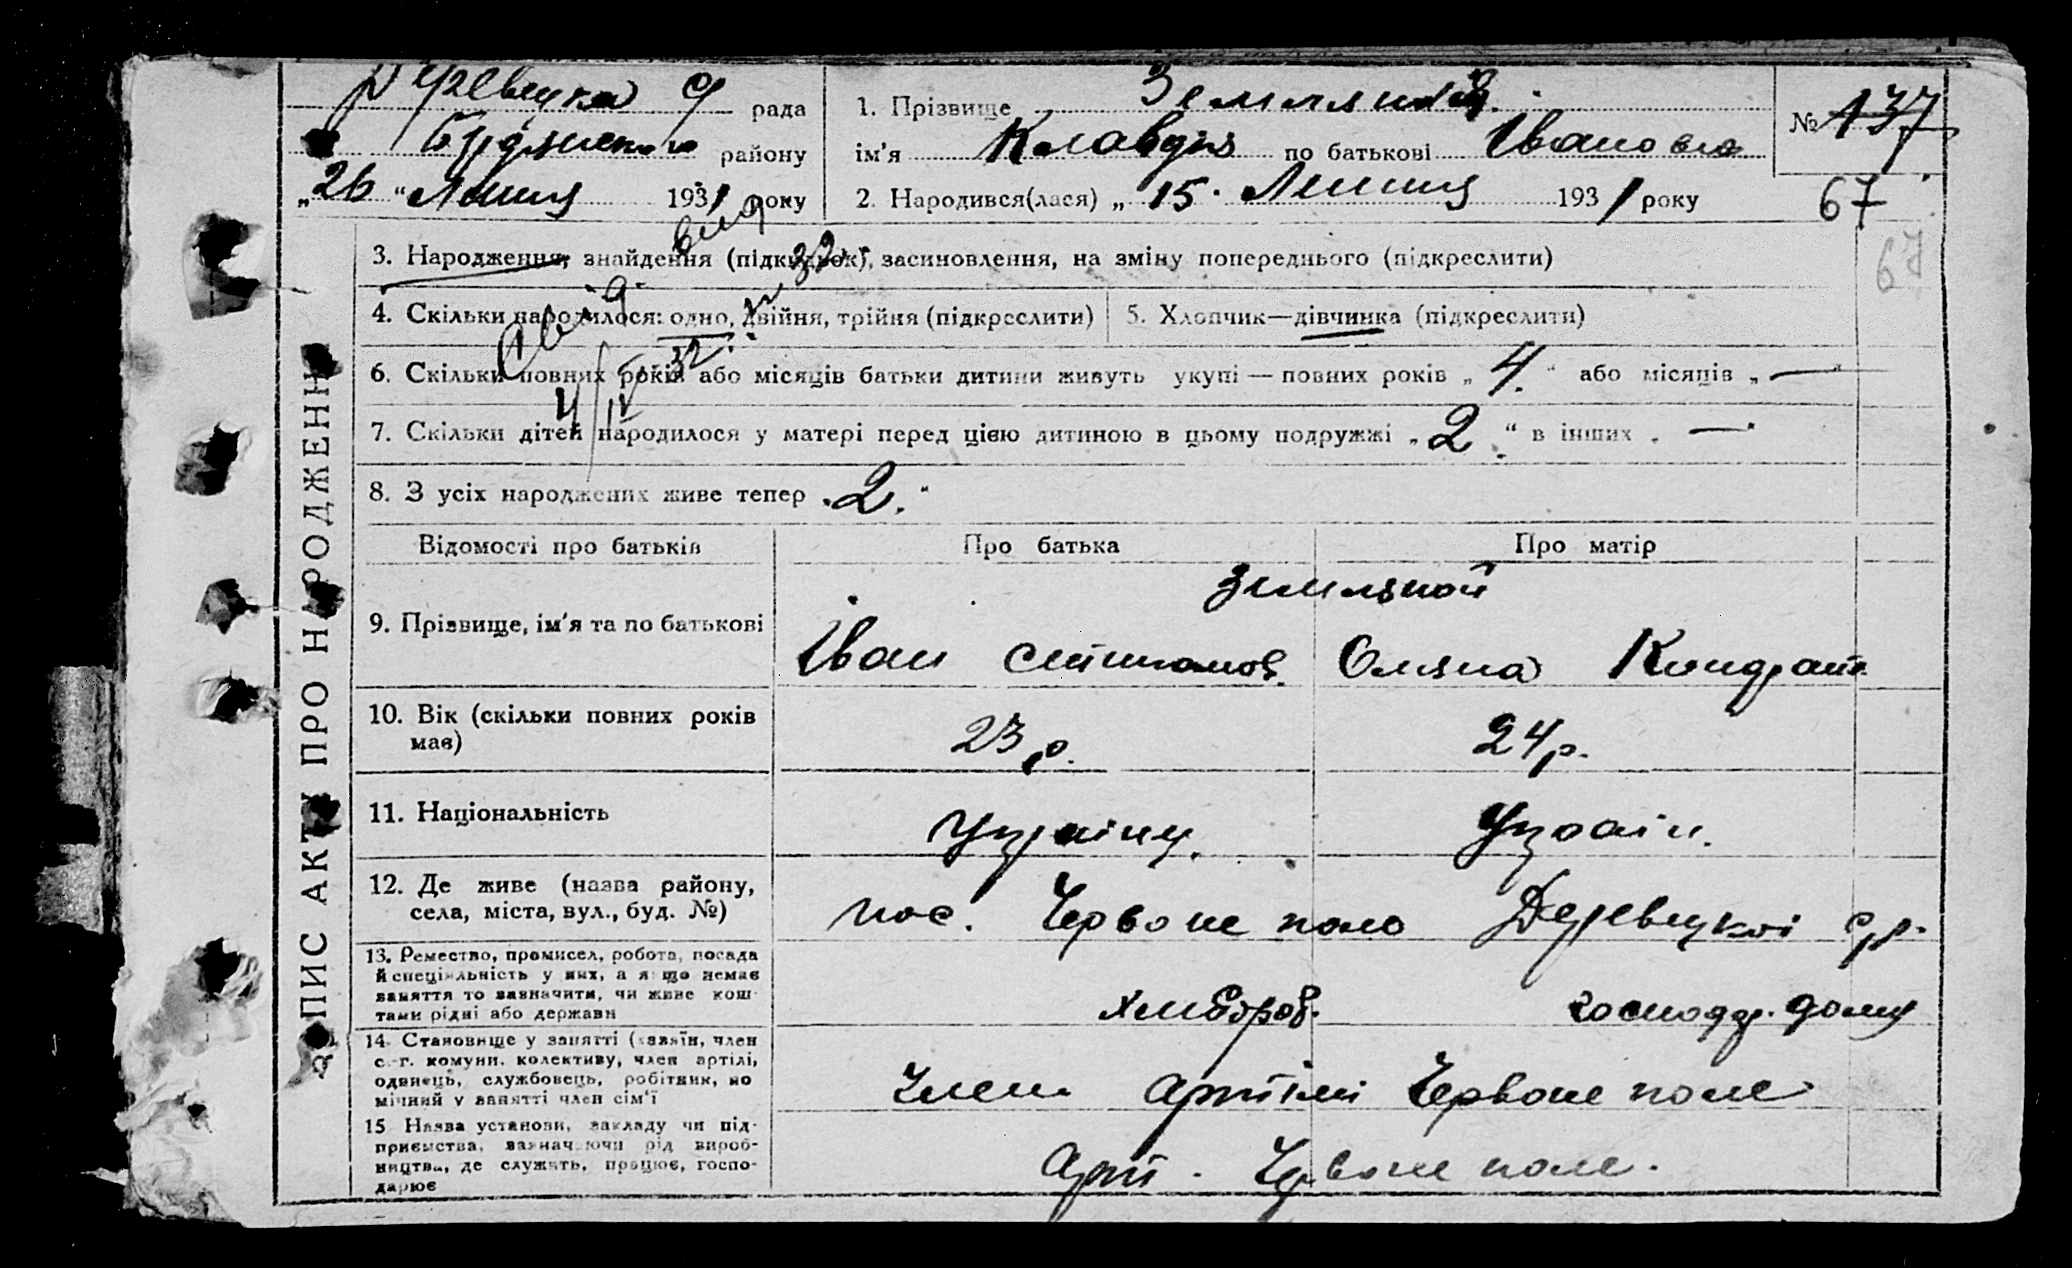 Деревецка с/ рада
районy
„26“ Липня 1931 року
1. Прізвище Земляной
№ 137
ім'я Клавдія по батькові Івановна
2. Народився(лася) „15“ Липня 1931 року
67
67
ЗАПИС АКТУ ПРО НАРОДЖЕННЯ
3. Народження, знайдення (підкидьок), засиновлення, на зміну попереднього (підкреслити)
4. Скільки народилося: одно, двійня, трійня (підкреслити)
5. Хлопчик—дівчинка (підкреслити)
6. Скільки повних років або місяців батьки дитини живуть укупі — повних років „4.“ або місяців „—“
7. Скільки дітей народилося у матері перед цією дитиною в цьому подружжі „2.“ в інших „—“
8. З усіх народжених живе тепер „2.“
Відомості про батьків
Про батька
Про матір
Земляной
9. Прізвище, ім'я та по батькові
Іван Степанов.
Оляна Кондрат.
10. Вік (скільки повних років має)
23 р.
24 р.
11. Національність
Україн.
12. Де живе (назва району,
села, міста, вул., буд. №)
пос. Червоне поле Деревецкої с/р.
13. Ремество, промисел, робота, посада
й спеціяльність у них, а якщо немає
заняття то зазначити, чи живе кош-
тами рідні або держави
хлібороб.
господар. дому
14. Становище у занятті (хазяїн, член
с.-г. комуни, колективу, член артілі,
одинець, службовець, робітник, по
мічний у занятті член сім'ї
Член Артілі Червоне поле
15. Назва установи, закладу чи під-
приємства, зазначаючи рід вироб-
ництва, де служить, працює, госпо-
дарює
Арт. Червоне поле.